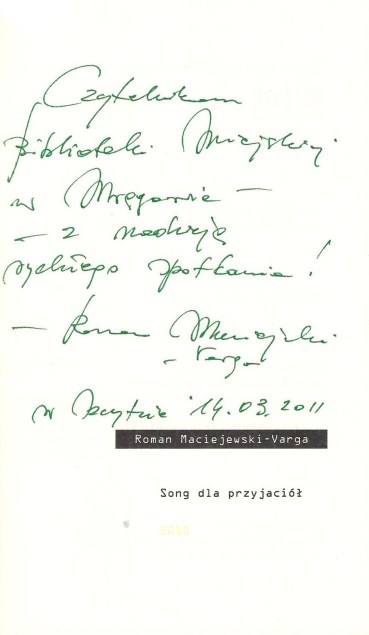 Czytelnikom
Biblioteki Miejskiej
w Mrągowie –
– z nadzieją
rychłego spotkania!
– Roman Maciejewski
– Varga
w Szczytnie 14.03.2011
Roman Maciejewski-Varga
Song dla przyjaciół